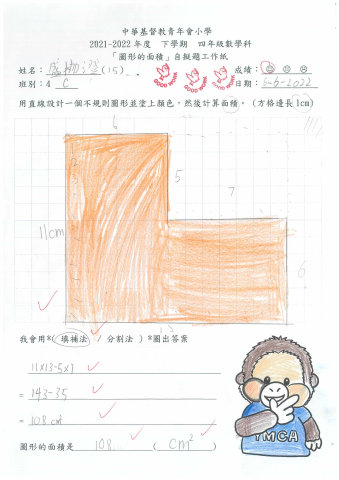 中華基督教青年會小學
2021-2022 年度 下學期 四年級數學科
「圖形的面積」自擬題工作紙
姓名： (15) 成績：
GOOD WORK GOOD WORK GOOD WORK
班別：4 C 日期：5-6-2022
用直線設計一個不規則圖形並塗上顏色，然後計算面積。（方格邊長 1cm）
6
5
7
11cm
6
13
我會用*( 填補法 / 分割法 ) *圈出答案
11×13-5×7
= 143-35
= 108 cm²
圖形的面積是 108 ( cm² )
YMCA